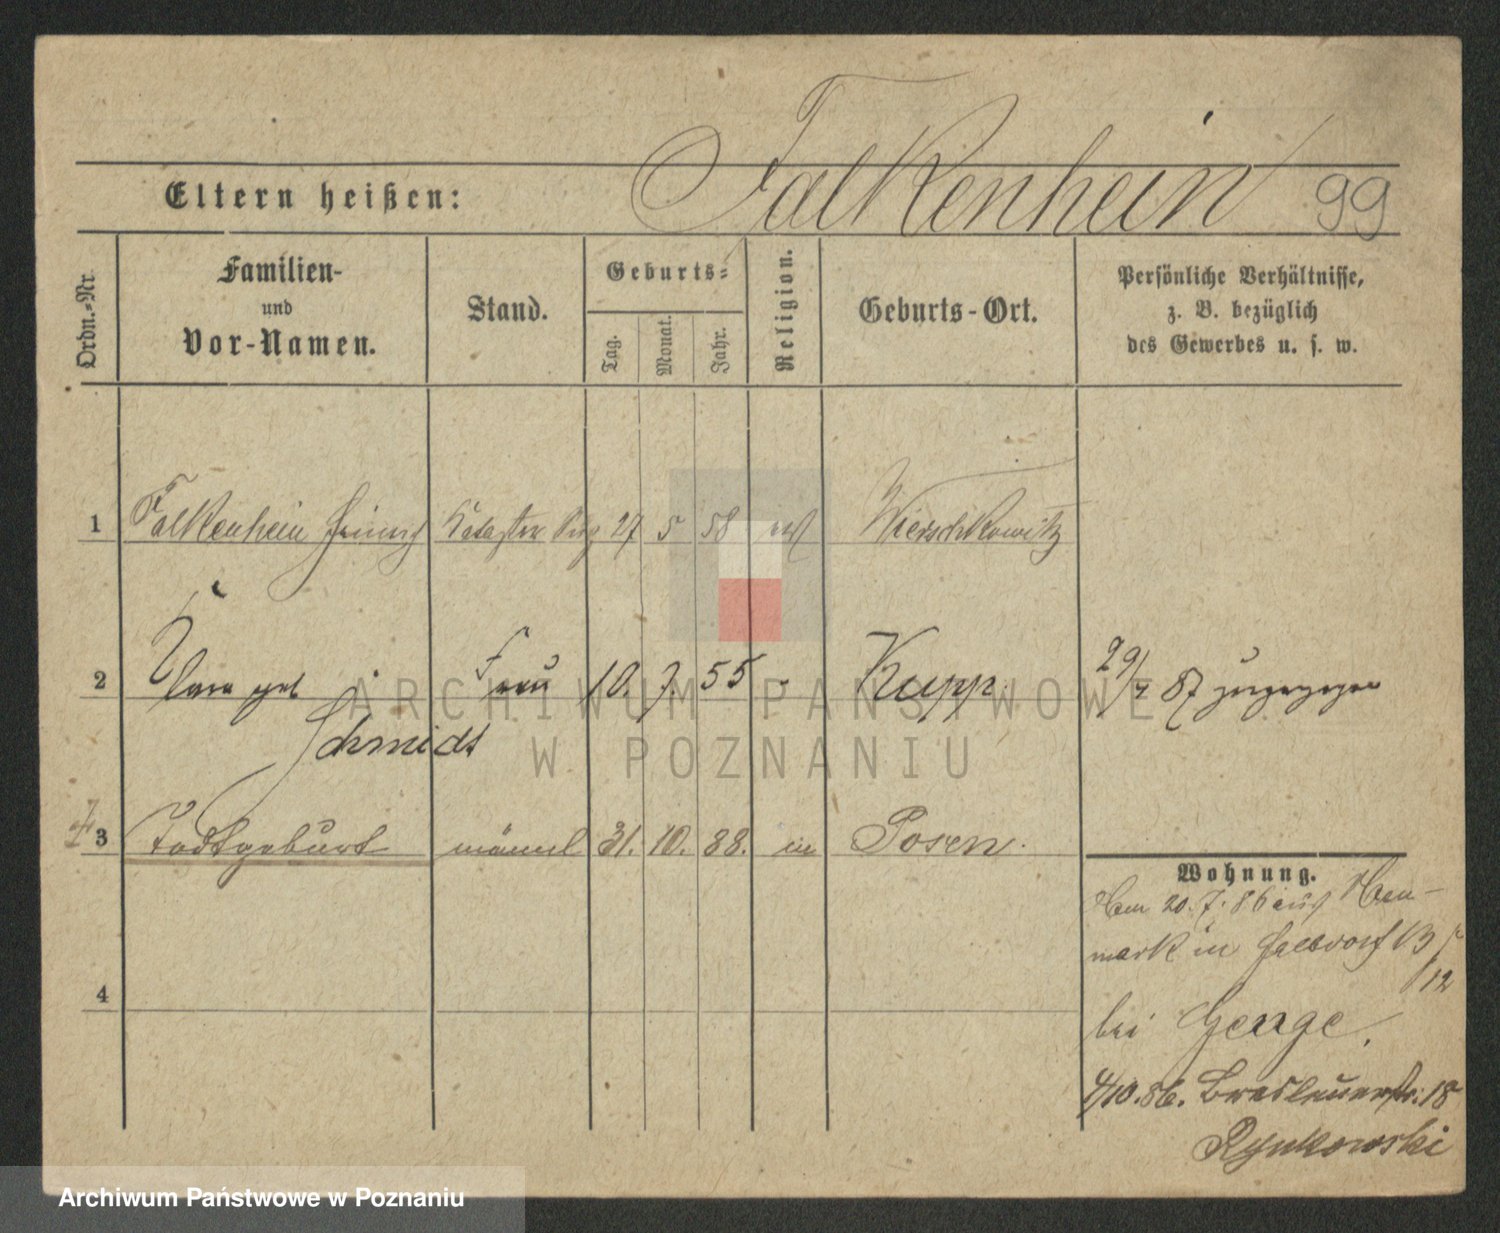 Falkenhein 99
Eltern heißen:
Ordn.-Nr.
Familien-
und
Vor-Namen.
Stand.
Geburts-
Tag.
Monat.
Jahr.
Religion.
Geburts-Ort.
Persönliche Verhältnisse,
z. B. bezüglich
des Gewerbes u. s. w.
1 Falkenhein Heinrich Kataster 27 5 58 Wierschkowitz
2 Clara geb Frau 10. 7 55 - Kupp. 29/4 87 zugezogen
Schmidt
3 Todtgeburt männl 31. 10. 88. in Posen.
4
Wohnung.
20. 7. 86 aus Neu-
mark in
12
bei Genge.
4/10.86. Breslauerstr. 18
Rynkowski
ARCHIWUM PAŃSTWOWE
W POZNANIU
Archiwum Państwowe w Poznaniu